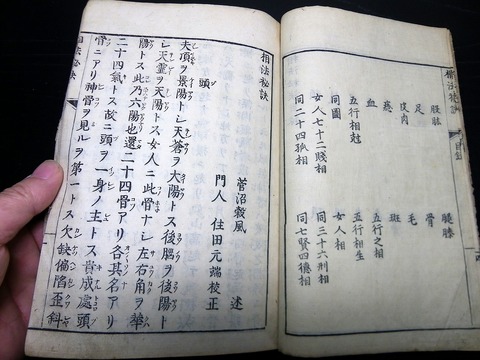 相法秘訣　目録
腰膝　腿膝
足　骨
皮肉　毛
痣　斑
血　五行之相
五行相剋　五行相生
同圖　女人相
女人七十二賤相　同三十六刑相
同二十四孤相　同七賢四德相
相法秘訣
菅沼毅風　述
門人　住田元端校正
頭
夫頂ヲ景陽トシ天蒼ヲ大陽トス後脳ヲ後陽ト
シ天霊ヲ天陽トス女人ニ此骨ナシ左右角ヲ華
陽トス此乃六陽也還二十四骨アリ各其名アリ
二十四氣トス故ニ頭ヲ一身ノ主トス貴成處頭
骨ニアリ神骨ヲ見ルヲ第一トス欠缺偏陷歪斜
相法秘訣